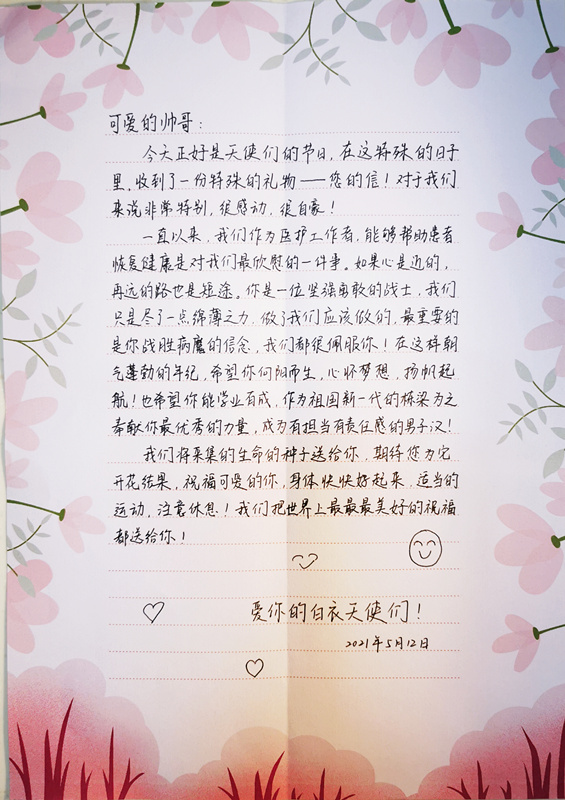 可爱的帅哥：
今天正好是天使们的节日，在这特殊的日子
里，收到了一份特殊的礼物——您的信！对于我们
来说非常特别，很感动，很自豪！
一直以来，我们作为医护工作者，能够帮助患者
恢复健康是对我们最欣慰的一件事。如果心是近的，
再远的路也是短途。你是一位坚强勇敢的战士，我们
只是尽了一点绵薄之力，做了我们应该做的，最重要的
是你战胜病魔的信念，我们都很佩服你！在这样朝
气蓬勃的年纪，希望你向阳而生，心怀梦想，扬帆起
航！也希望你能学业有成，作为祖国新一代的栋梁为之
奉献你最优秀的力量，成为有担当有责任感的男子汉！
我们将采集的生命的种子送给你，期待您为它
开花结果，祝福可爱的你，身体快快好起来，适当的
运动，注意休息！我们把世界上最最最美好的祝福
都送给你！
爱你的白衣天使们！
2021年5月12日